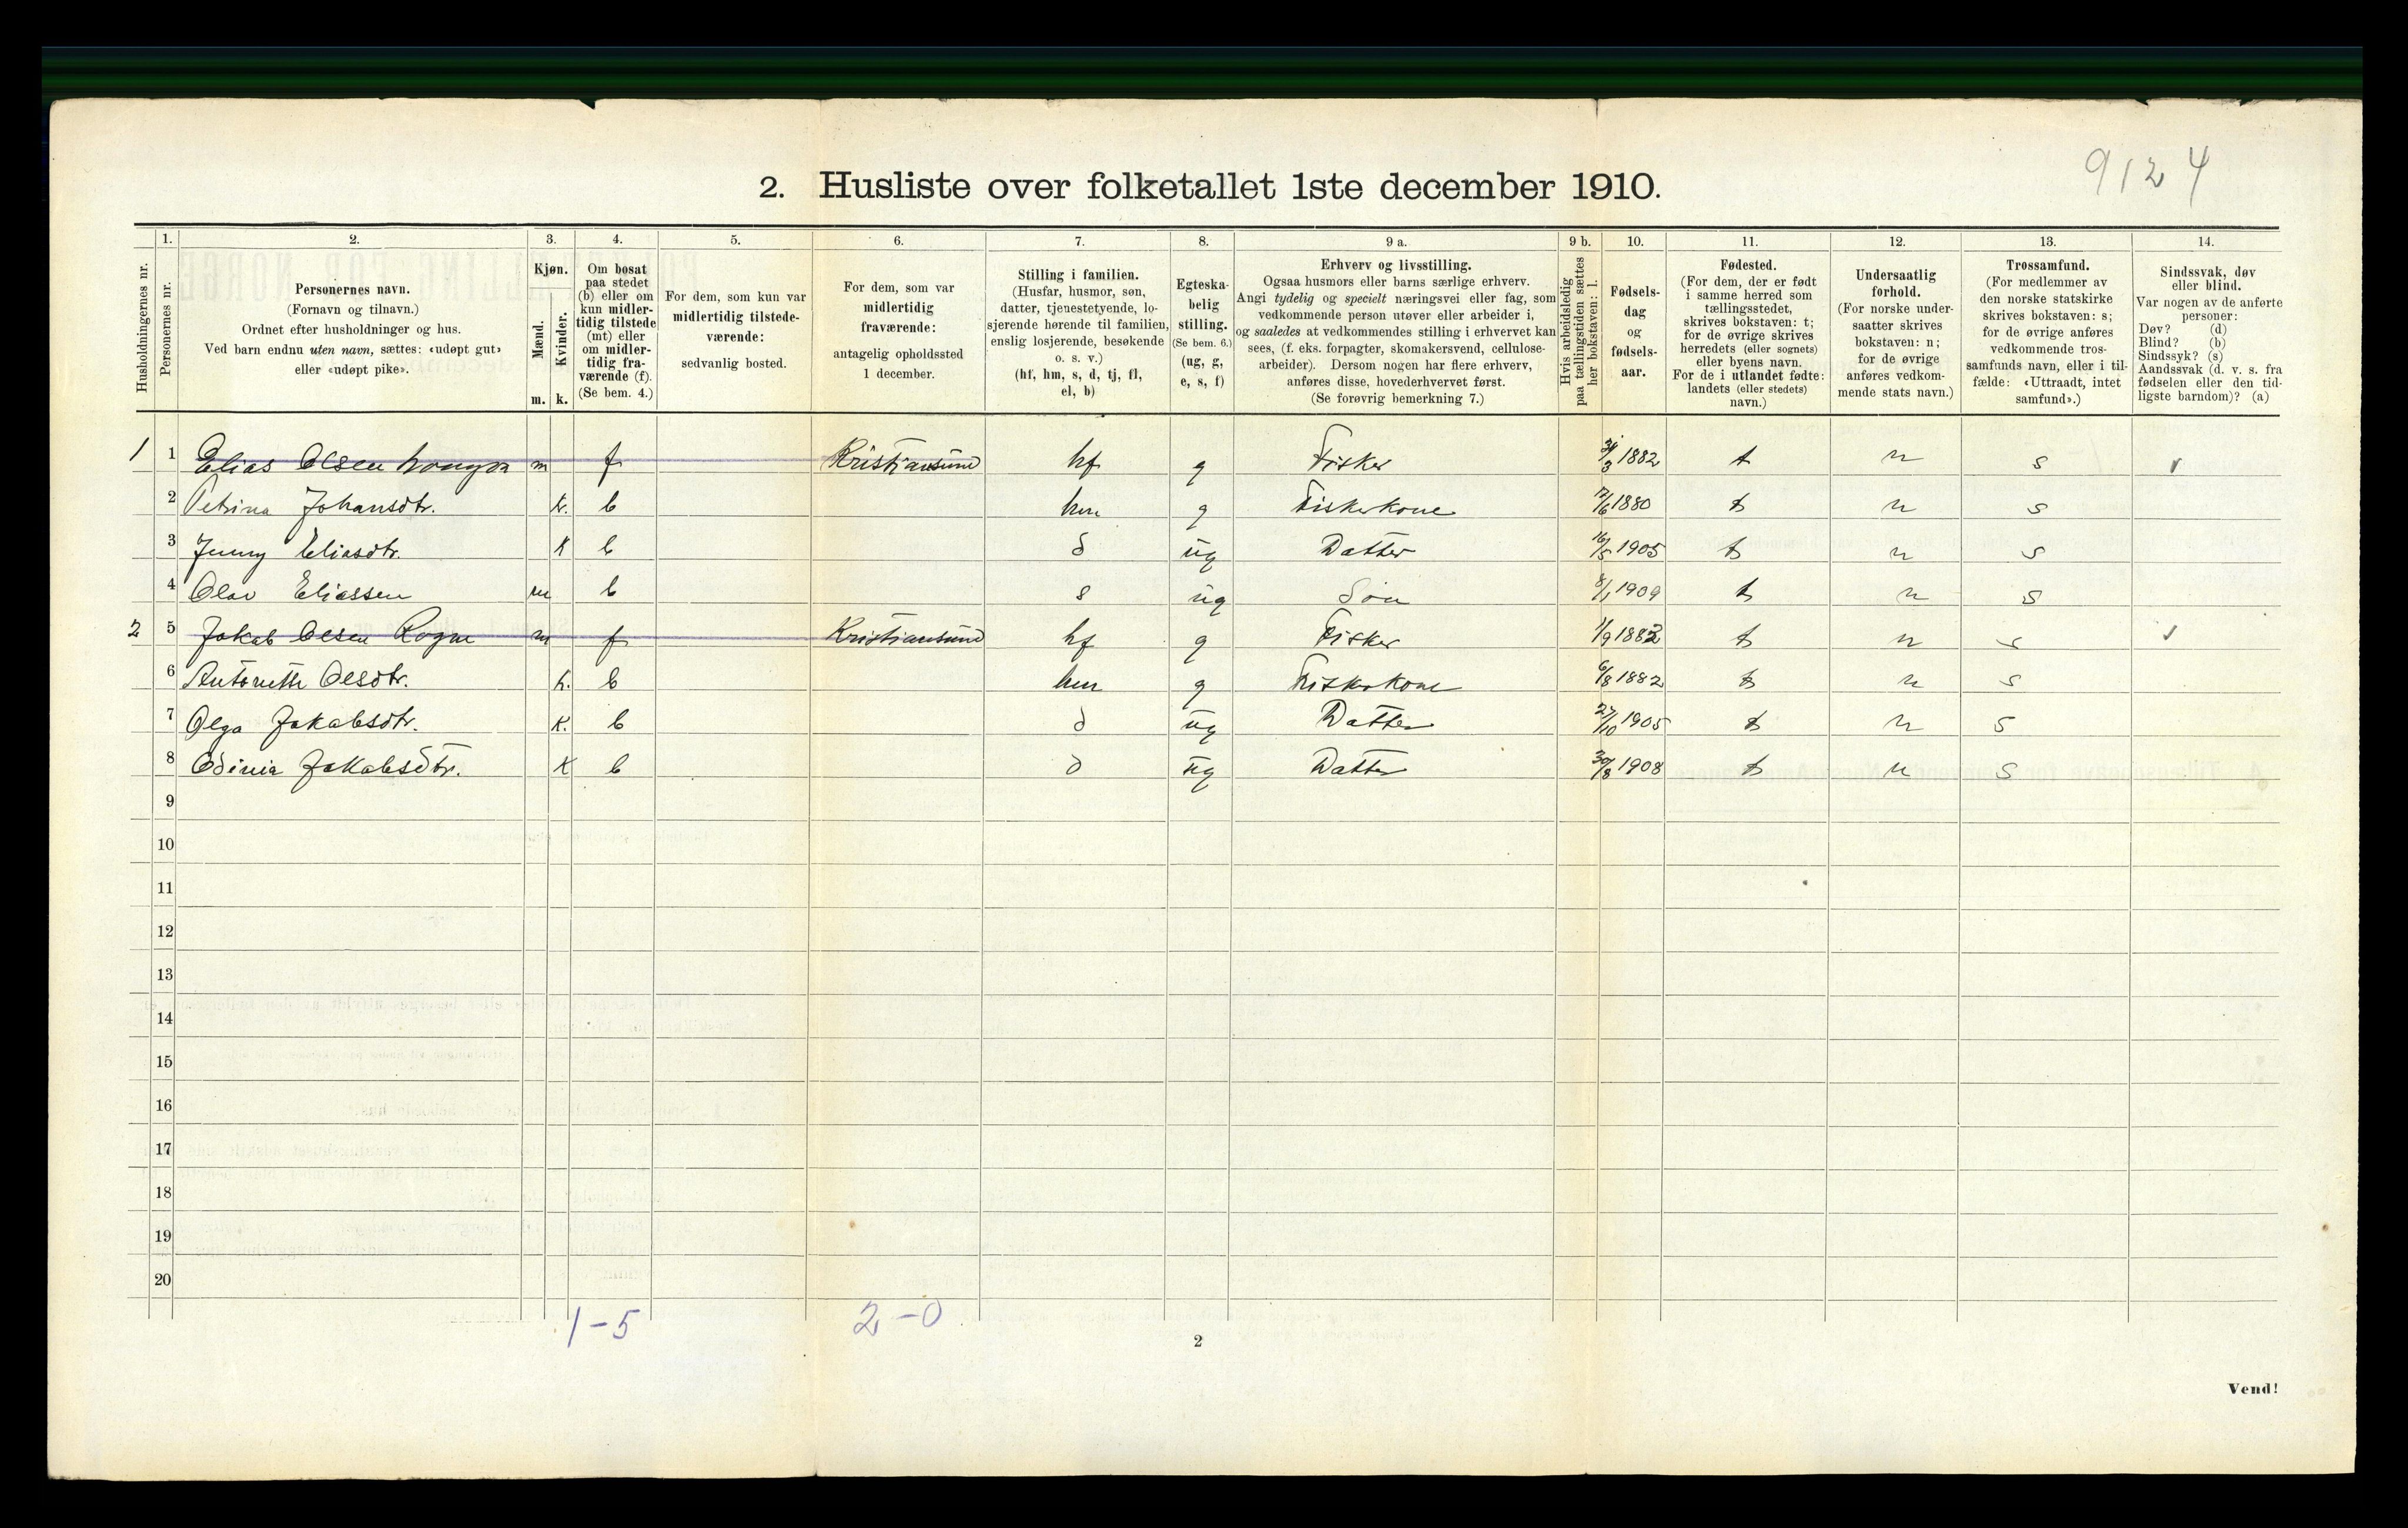 9124
2. Husliste over folketallet 1ste december 1910.
Husholdningernes nr.
1.
Personernes nr.
2.
Personernes navn.
(Fornavn og tilnavn.)
Ordnet efter husholdninger og hus.
Ved barn endnu uten navn, sættes: «udøpt gut»
eller «udøpt pike».
3.
Kjøn.
Mænd.
Kvinder.
m. k.
4.
Om bosat
paa stedet
(b) eller om
kun midler-
tidig tilstede
(mt) eller
om midler-
tidig fra-
værende (f).
(Se bem. 4.)
5.
For dem, som kun var
midlertidig tilstede-
værende:
sedvanlig bosted.
6.
For dem, som var
midlertidig
fraværende:
antagelig opholdssted
1 december.
7.
Stilling i familien.
(Husfar, husmor, søn,
datter, tjenestetyende, lo-
sjerende hørende til familien,
enslig losjerende, besøkende
o. s. v.)
(hf, hm, s, d, tj, fl,
el, b)
8.
Egteska-
belig
stilling.
(Se bem. 6.)
(ug, g,
e, s, f)
9 a.
Erhverv og livsstilling.
Ogsaa husmors eller barns særlige erhverv.
Angi tydelig og specielt næringsvei eller fag, som
vedkommende person utøver eller arbeider i,
og saaledes at vedkommendes stilling i erhvervet kan
sees, (f. eks. forpagter, skomakersvend, cellulose-
arbeider). Dersom nogen har flere erhverv,
anføres disse, hovederhvervet først.
(Se forøvrig bemerkning 7.)
9 b.
Hvis arbeidsledig
paa tællingstiden sættes
her bokstaven: l.
10.
Fødsels-
dag
og
fødsels-
aar.
11.
Fødested.
(For dem, der er født
i samme herred som
tællingsstedet,
skrives bokstaven: t;
for de øvrige skrives
herredets (eller sognets)
eller byens navn.
For de i utlandet fødte:
landets (eller stedets)
navn.)
12.
Undersaatlig
forhold.
(For norske under-
saatter skrives
bokstaven: n;
for de øvrige
anføres vedkom-
mende stats navn.)
13.
Trossamfund.
(For medlemmer av
den norske statskirke
skrives bokstaven: s;
for de øvrige anføres
vedkommende tros-
samfunds navn, eller i til-
fælde: «Uttraadt, intet
samfund».)
14.
Sindssvak, døv
eller blind.
Var nogen av de anførte
personer:
Døv? (d)
Blind? (b)
Sindssyk? (s)
Aandssvak (d. v. s. fra
fødselen eller den tid-
ligste barndom)? (a)
1 1 Elias Olsen m f Kristiansund hf g Fisker 1882 t n s
2 Petrina Johansdtr. k. b hm g Fiskerkone 17/6 1880 t n s
3 Jenny Eliasdtr. k b d ug Datter 16/5 1905 t n s
4 Olav Eliassen m b s ug Søn 8/1 1909 t n s
2 5 Jakob Olsen Rogne m f Kristiansund hf g Fisker 1/9 1882 t n s
6 Antonette Olsdtr. k. b hm g Fiskerkone 6/8 1882 t n s
7 Olga Jakobsdtr. k. b d ug Datter 27/10 1905 t n s
8 Odinia Jakobsdtr. k b d ug Datter 30/8 1908 t n s
9
10
11
12
13
14
15
16
17
18
19
20
1-5 2-0
2
Vend!